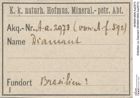 K. k. naturh. Hofmus. Mineral.-petr. Abt.
Akq.-Nr. A.a. 2973 (vom A.f. 592)
Name Diamant
Fundort Brasilien?